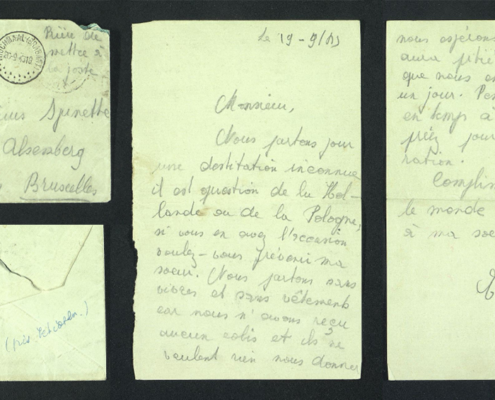 Prière de
mettre à
la poste
Spinette
Alsemberg
Bruxelles
Le 19-9/43
Monsieur,
Nous partons pour
une destitation inconnue
il est question de la Hol-
lande ou de la Pologne,
si vous en avez l'occasion
voulez-vous prévenir ma
soeur. Nous partons sans
vivres et sans vêtements
car nous n'avons reçu
aucun colis et ils ne
veulent rien nous donner
nous espérons
aura pitié
que nous
un jour.
en temps à
priez pour
ration.
Complim
le monde
à ma soe